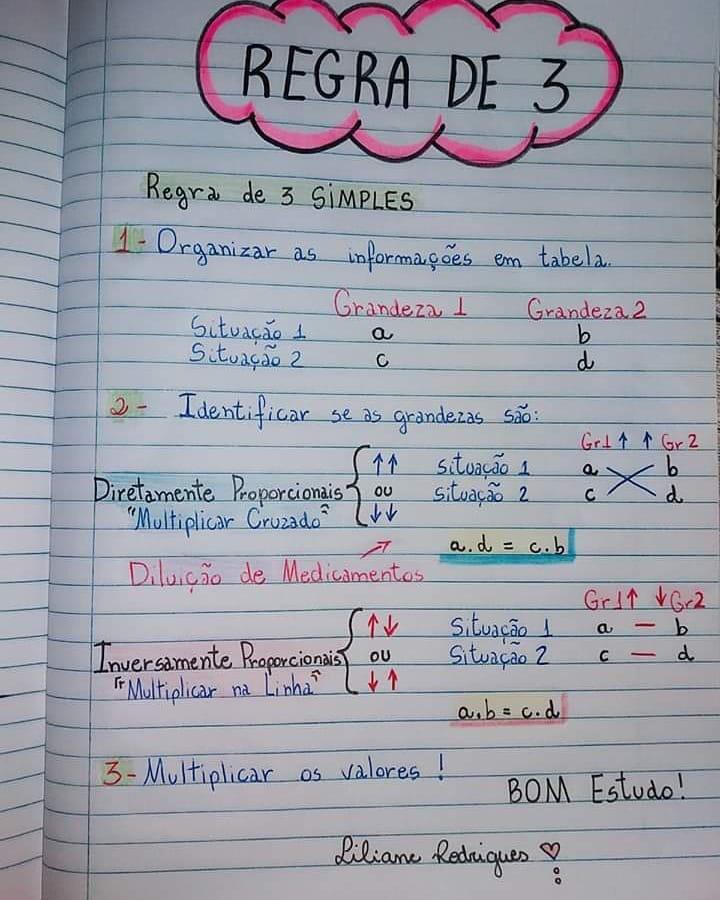 REGRA DE 3
Regra de 3 SIMPLES
1- Organizar as informações em tabela.
Grandeza 1 Grandeza 2
Situação 1 a b
Situação 2 c d
2- Identificar se as grandezas são:
Gr1 ↑ ↑ Gr2
↑↑ situação 1 a b
Diretamente Proporcionais ou situação 2 c d
"Multiplicar Cruzado" ↓↓
a.d = c.b
Diluição de Medicamentos
Gr1↑ ↓Gr2
↑↓ Situação 1 a — b
Inversamente Proporcionais ou Situação 2 c — d
"Multiplicar na Linha" ↓↑
a.b = c.d
3- Multiplicar os valores!
BOM Estudo!
Liliane Rodrigues ♡